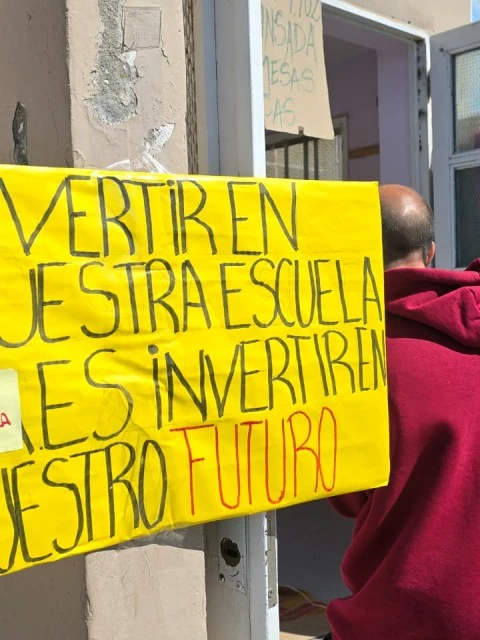 NSADA
MESAS
AS
VERTIR EN
UESTRA ESCUELA
ES INVERTIR EN
UESTRO FUTURO